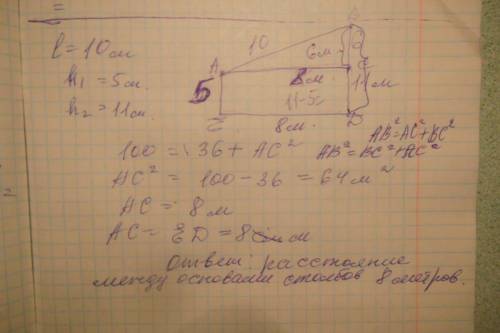 l = 10 см
h1 = 5 см.
h2 = 11 см.
B
10
6 м.
6
A
C
8 м.
11 м
5
11-5=
E
8 м.
D
AB² = AC² + BC²
100 = 36 + AC²
AB² = BC² + AC²
AC² = 100 - 36 = 64 м²
AC = 8 м
AC = ED = 8 м
Ответ: расстояние
между основами столбов 8 метров.